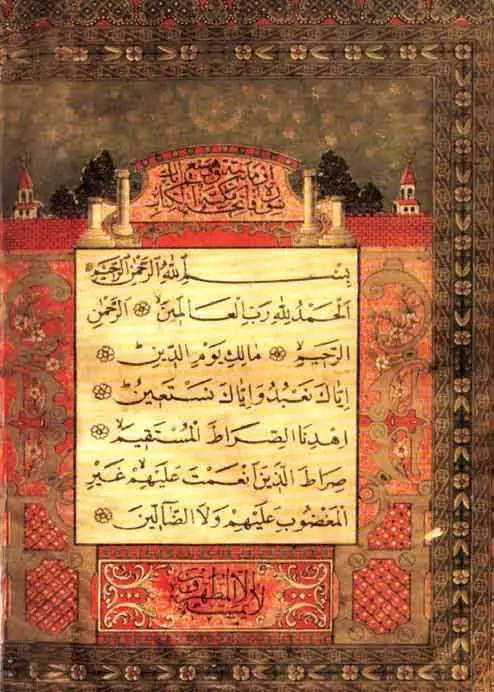 بِسْمِ اللهِ الرَّحْمٰنِ الرَّحِيْمِ
اَلْحَمْدُ لِلّٰهِ رَبِّ الْعَالَمِيْنَۙ ۞ اَلرَّحْمٰنِ
الرَّحِيْمِۙ ۞ مَالِكِ يَوْمِ الدِّيْنِؕ ۞
اِيَّاكَ نَعْبُدُ وَاِيَّاكَ نَسْتَعِيْنُؕ ۞
اِهْدِنَا الصِّرَاطَ الْمُسْتَقِيْمَۙ ۞
صِرَاطَ الَّذِيْنَ اَنْعَمْتَ عَلَيْهِمْۙ غَيْرِ
الْمَغْضُوْبِ عَلَيْهِمْ وَلَا الضَّآلِّيْنَ ۞
لا يمسه الا المطهرون